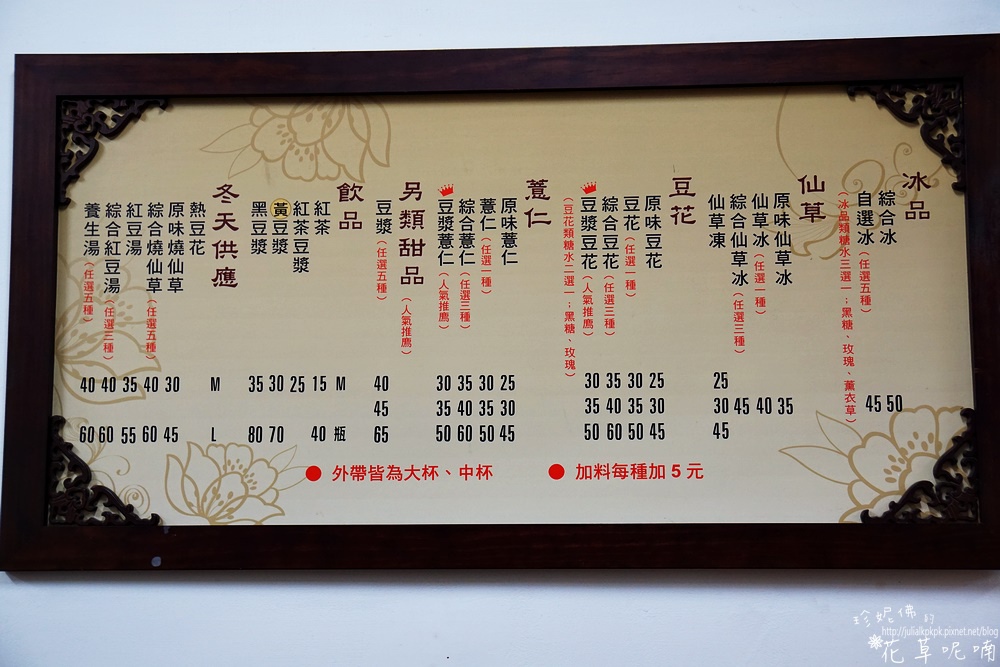 冰品
綜合冰 50
自選冰（任選五種） 45
（冰品類糖水三選一；黑糖、玫瑰、薰衣草）
仙草
原味仙草冰 35
仙草冰（任選一種） 40
綜合仙草冰（任選三種） 45
仙草凍 25 30 45
豆花
原味豆花 25 30 45
豆花（任選一種） 30 35 50
綜合豆花（任選三種） 35 40 60
豆漿豆花（人氣推鷹） 30 35 50
（豆花類糖水二選一；黑糖、玫瑰）
薏仁
原味薏仁 25 30 45
薏仁（任選一種） 30 35 50
綜合薏仁（任選三種） 35 40 60
豆漿薏仁（人氣推鷹） 30 35 50
另類甜品（人氣推鷹）
豆漿（任選五種） 40 45 65
飲品 M 瓶
紅茶 15 40
紅茶豆漿 25
黃豆漿 30 70
黑豆漿 35 80
冬天供應 M L
熱豆花
原味燒仙草 30 45
綜合燒仙草（任選五種） 40 60
紅豆湯 35 55
綜合紅豆湯（任選三種） 40 60
養生湯（任選五種） 40 60
● 外帶皆為大杯、中杯
● 加料每種加 5 元
珍妮佛的
http://julialkpkpk.pixnet.net/blog
花草呢喃